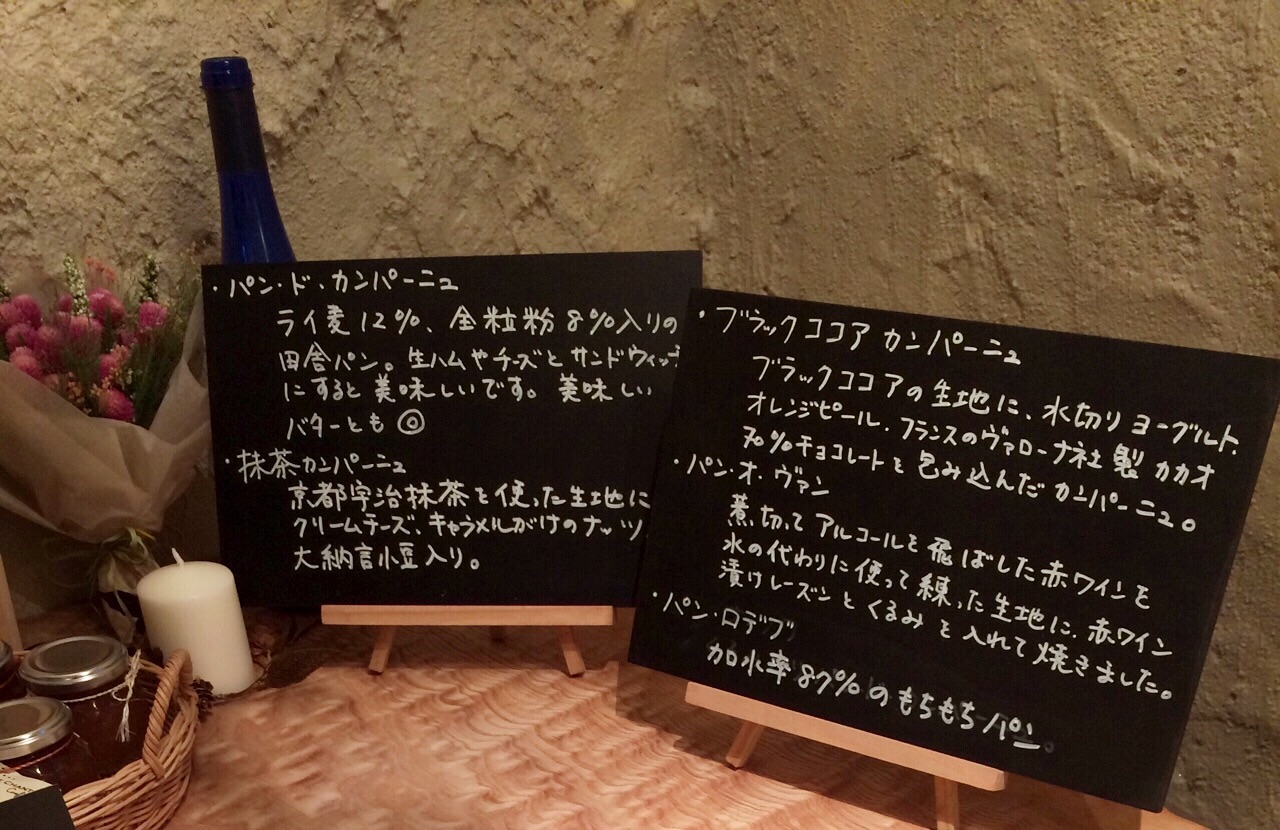 ・パン・ド・カンパーニュ
ライ麦12%、全粒粉8%入りの
田舎パン。生ハムやチーズとサンドウィッチ
にすると美味しいです。美味しい
バターとも◎
・抹茶カンパーニュ
京都宇治抹茶を使った生地に
クリームチーズ、キャラメルがけのナッツ
大納言小豆入り。
・ブラックココアカンパーニュ
ブラックココアの生地に、水切りヨーグルト、
オレンジピール、フランスのヴァローナ社製カカオ
70%チョコレートを包み込んだカンパーニュ。
・パン・オ・ヴァン
煮切ってアルコールを飛ばした赤ワインを
水の代わりに使って練った生地に、赤ワイン
漬けレーズンとくるみを入れて焼きました。
・パン・ロデブ
加水率87%のもちもちパン。